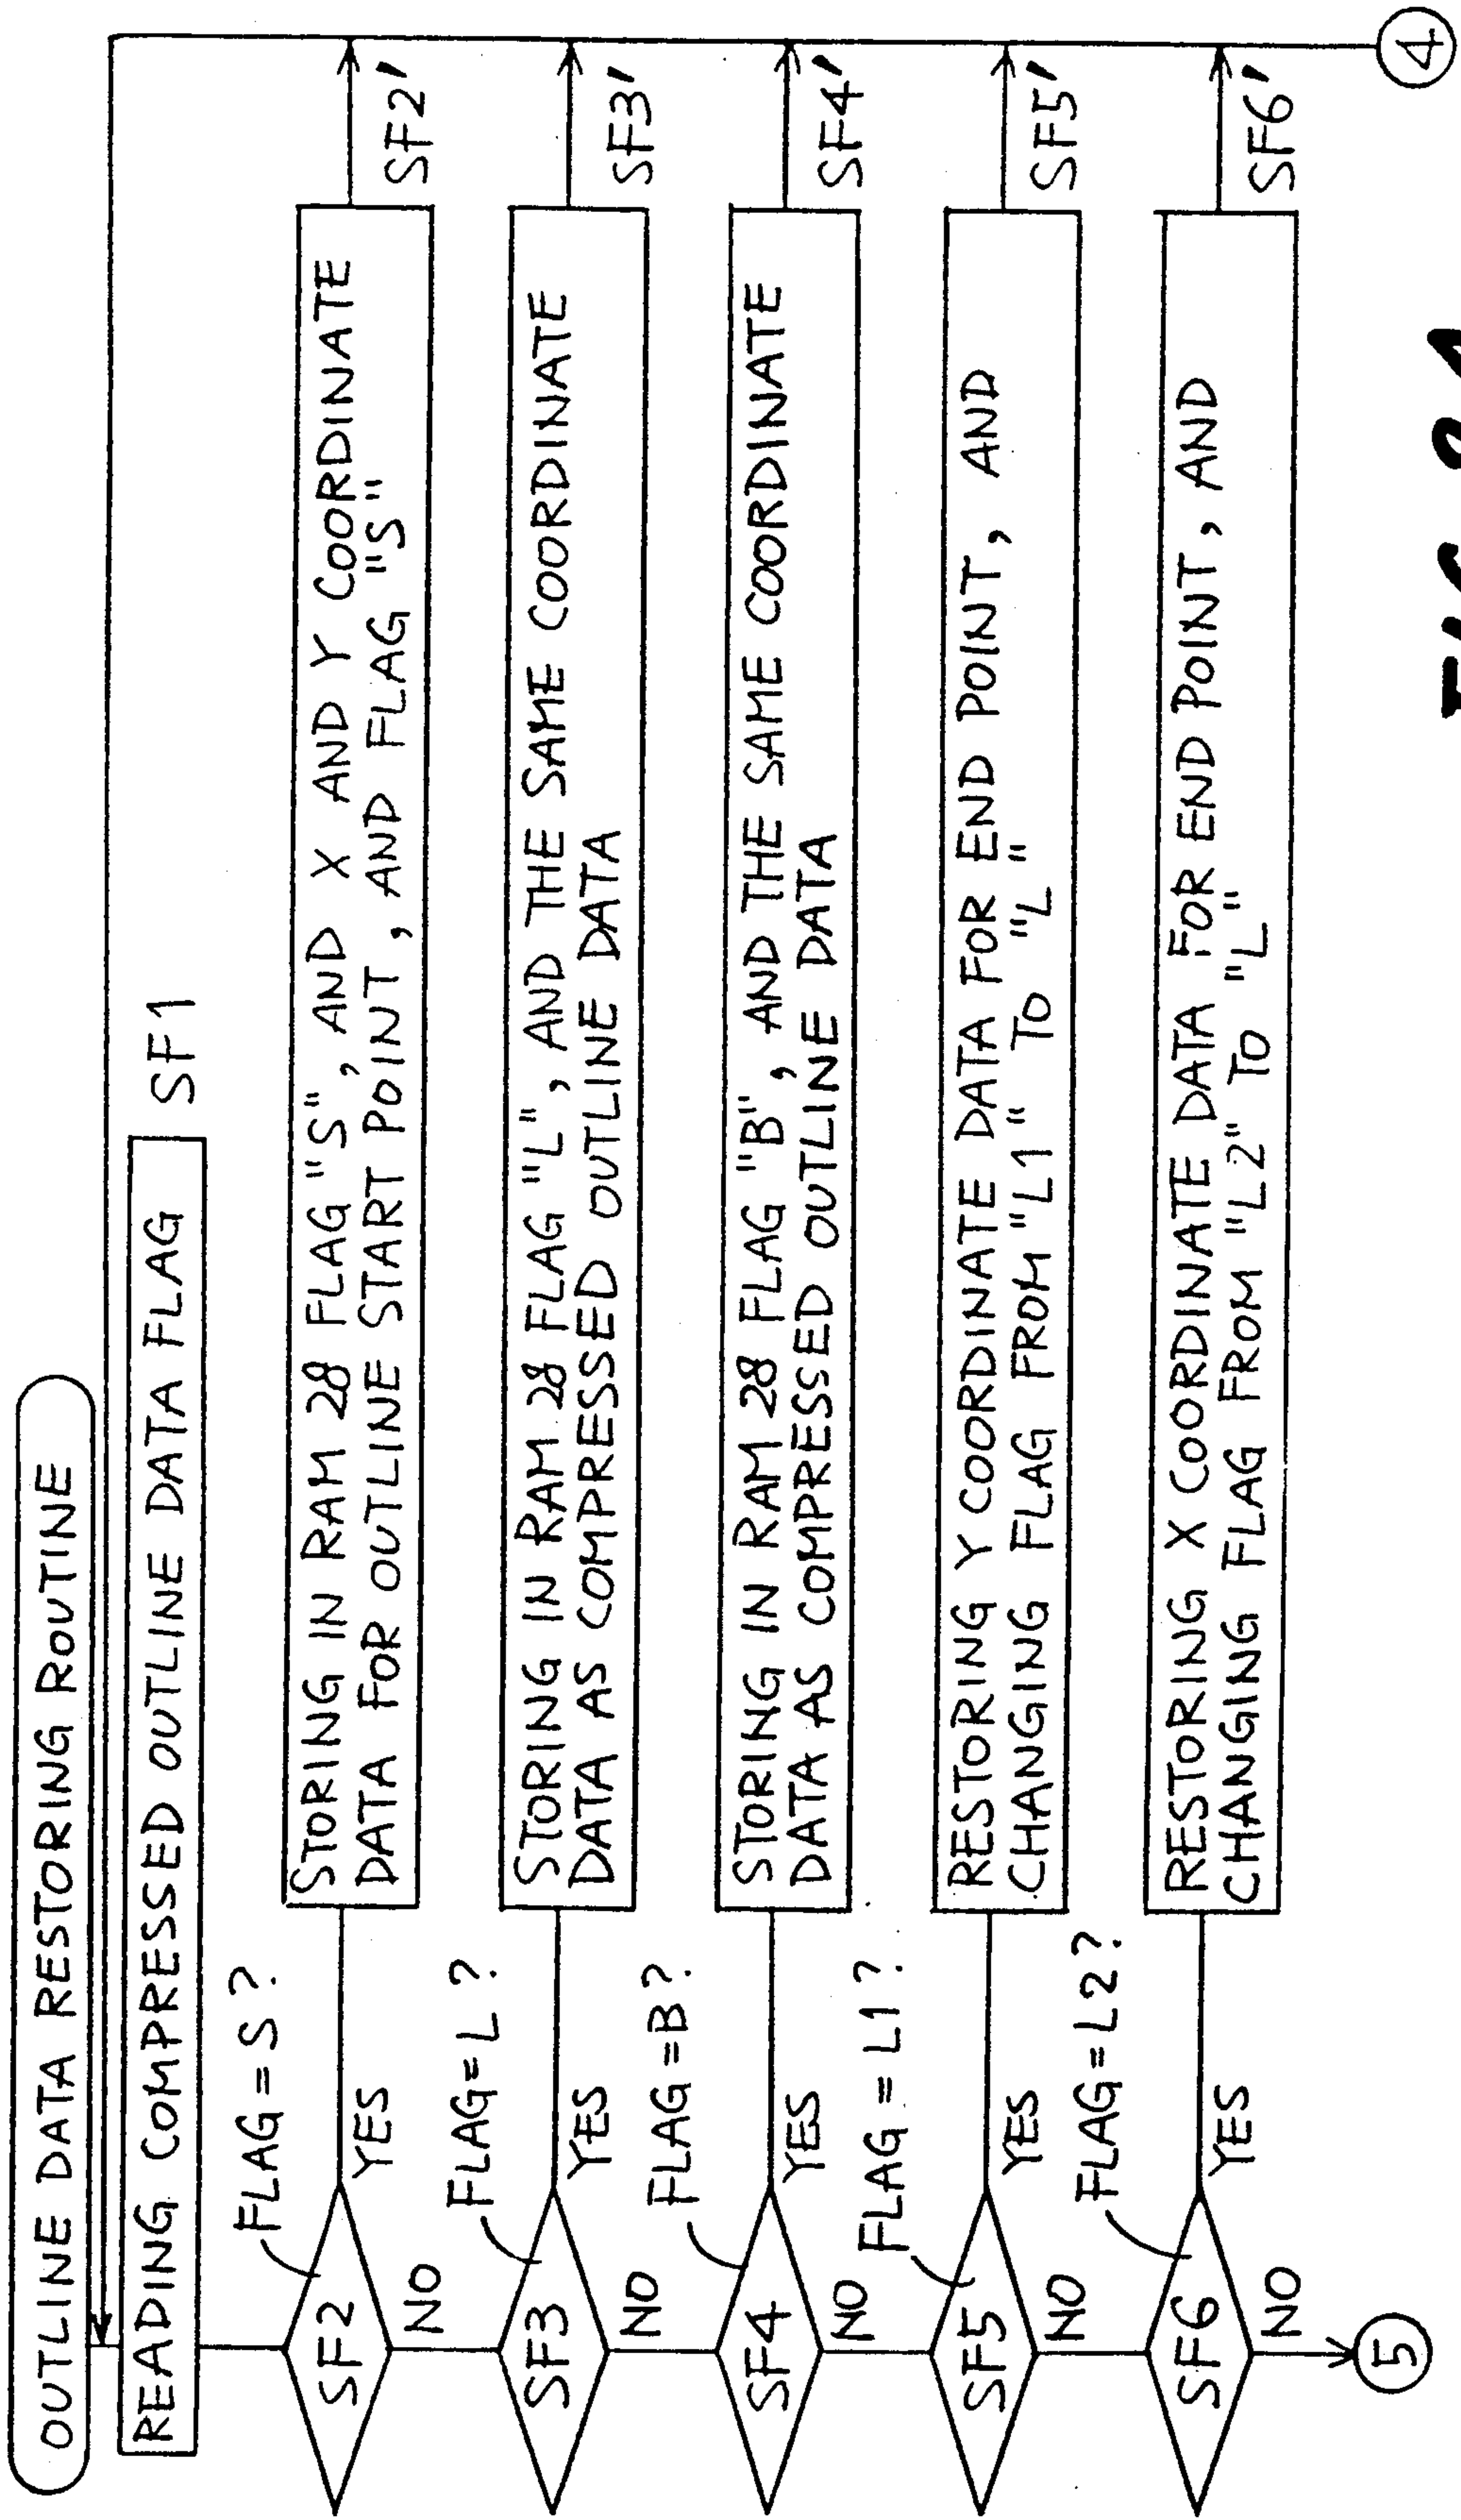 OUTLINE DATA RESTORING ROUTINE
READING COMPRESSED OUTLINE DATA FLAG
SF1
FLAG = S ?
SF2
YES
NO
STORING IN RAM 28 FLAG "S", AND X AND Y COORDINATE
DATA FOR OUTLINE START POINT, AND FLAG "S"
SF2'
FLAG = L ?
SF3
YES
NO
STORING IN RAM 28 FLAG "L", AND THE SAME COORDINATE
DATA AS COMPRESSED OUTLINE DATA
SF3'
FLAG = B ?
SF4
YES
NO
STORING IN RAM 28 FLAG "B", AND THE SAME COORDINATE
DATA AS COMPRESSED OUTLINE DATA
SF4'
FLAG = L1 ?
SF5
YES
NO
RESTORING Y COORDINATE DATA FOR END POINT, AND
CHANGING FLAG FROM "L1" TO "L"
SF5'
FLAG = L2 ?
SF6
YES
NO
RESTORING X COORDINATE DATA FOR END POINT, AND
CHANGING FLAG FROM "L2" TO "L"
SF6'
5
4